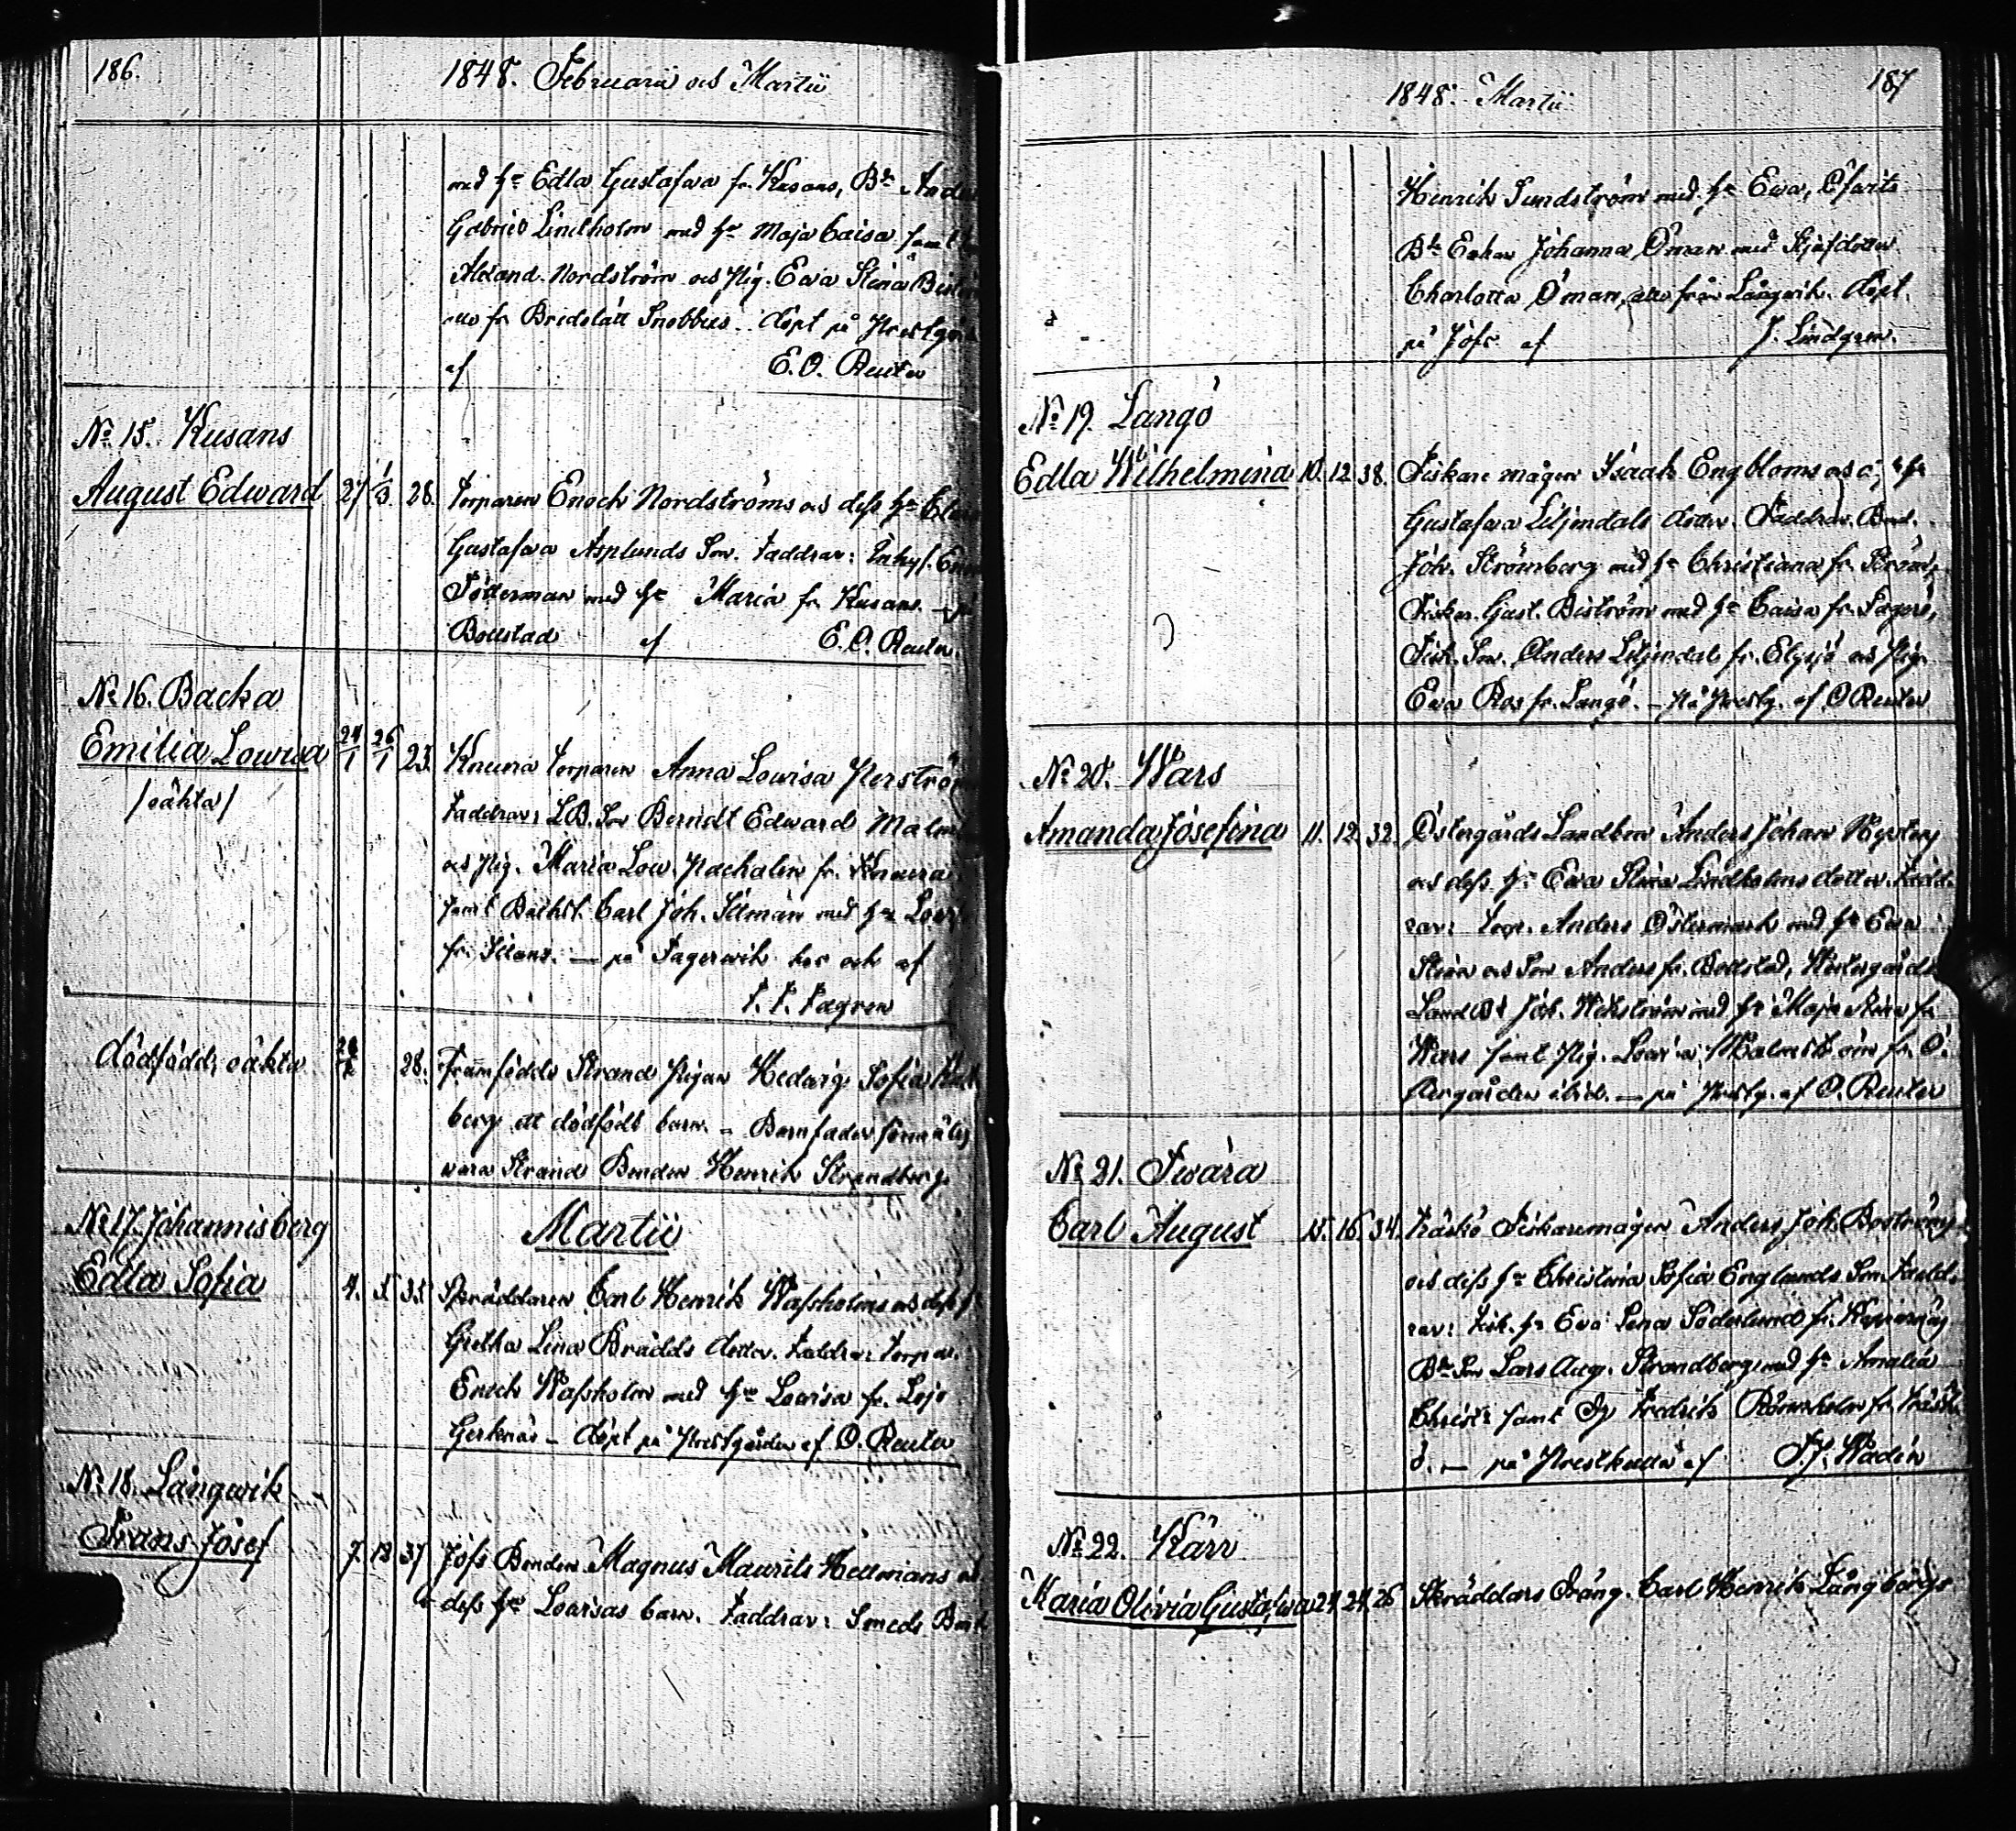 186.
1848. Februarii och Martii
med hu Edla Gustafva fr. Kusans, Bde
Gabriel Lindholm med hu Maja Caisa samt
Nordström och Pig. Ewa Stina
fr Bredslätt Snobbus. döpt på
af E. O. Reuter
No 15. Kusans
August Edward 27 1/3. 28. Torparen Enoch Nordströms och dess hu
Gustafva Asplunds Son. Faddrar: Inhys.
Söderman med hu Maria fr Kusans. – på
Bollstad af E. O. Reuter.
No 16. Backa
Emilia Lowisa 24/1 26/1 23. Knuura Torparen Anna Lowisa
/oäkta/
Faddrar: LB. Son Berndt Edward
och Pig. Maria Low. Pachalin fr. Knuura
samt Carl Joh. med hu
fr. – på Fagerwik hos och af
F. F. Fagren
dödfödd, oäkta 28. Framfödde Strand Pigan Hedwig Sofia
berg ett dödfödt barn. – Barnfader
vara Strand Bonden Henrik Strandberg.
No 17. Johannisberg
Martii
Edla Sofia 4. 5. 35. Skräddaren Carl Henrik Wassholms och dess
Gretha Lina Brädds dotter. Faddrar: Torpar.
Enoch Wassholm med hu Lowisa fr. Lojo
Gerknäs – döpt på Prestgården af O. Reuter
No 18. Långwik
Frans Josef 7. 12 37 Jofs Bonden Magnus Maurits Hellmans och
dess hu Lowisas barn. Faddrar: Smeds
187
1848. Martii
Henrik Sundström med hu Ewa,
Bde Enkan Johanna Öman med Stjufdotter
Charlotta Öman, alla från Långwik. döpt
på Jofs af J. Lindgren.
No 19. Langö
Edla Wilhelmina 10. 12. 38. Fiskare mågen Isaak Engbloms och
Gustafva Liljendals dotter. Faddrar.
Joh. Strömberg med hu Christiana fr.
Fiskar. Gust. Biström med hu Caisa fr. Fagerö,
Fisk. Son. Anders Liljendal fr. Elgsjö och Pig.
Ewa Ros fr. Langö. – På Prestg. af O Reuter
No 20. Wars
Amanda Josefina 11. 12. 32. Östergårds Landbon Anders Johan
och dess hu Ewa Stina Lindholms dotter. Fadd-
rar: Torp. Anders Östermark med hu Ewa
Stina och Son Anders fr. Bollstad, Westergårds
Landb Joh. Wikström med hu Maja Stina fr
Wars samt Pig. Lowisa Malmström fr. Ö-
stergården ibid. – på Prestg. af O. Reuter
No 21. Swära
Carl August 15. 16. 34. Träskö Fiskaremågen Anders Joh. Boströms
och dess hu Christina Sofia Englunds Son. Fadd-
rar: Fisk. hu Ewa Lena Söderlund fr.
Bde Son Lars Aug. Strandberg med hu Amalia
Christ: samt Dg Fredrik fr. Träsk-
ö. – på Prestkulla af Wadén
No 22. Kärr
Maria Olivia Gustafva 24. 24. 26 Skräddars Dräng. Carl Henrik Långbergs